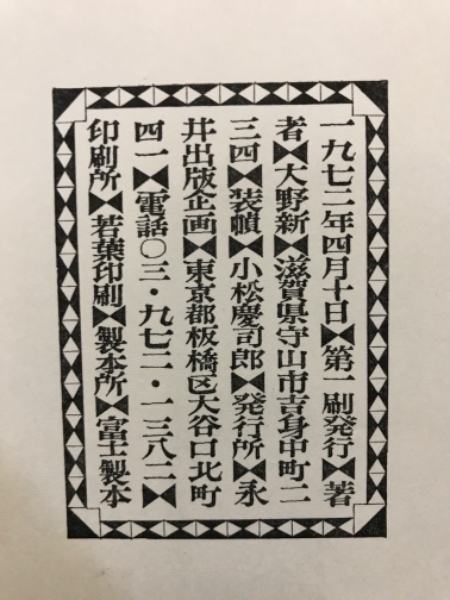 一九七二年四月十日⧓第一刷発行⧓著
者⧓大野新⧓滋賀県守山市吉身中町二
三四⧓装幀⧓小松慶司郎⧓発行所⧓永
井出版企画⧓東京都板橋区大谷口北町
四一⧓電話〇三・九七二・一三八二⧓
印刷所⧓若葉印刷⧓製本所⧓富士製本